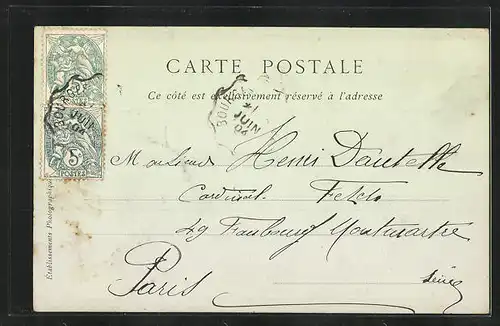 CARTE POSTALE
Ce côté est exclusivement réservé à l'adresse
JUIN
04
5
POSTES
Monsieur Henri Dautelle
Cardinal Fesch
49 Faubourg Montmartre
Paris
Seine
Établissements Photographiques